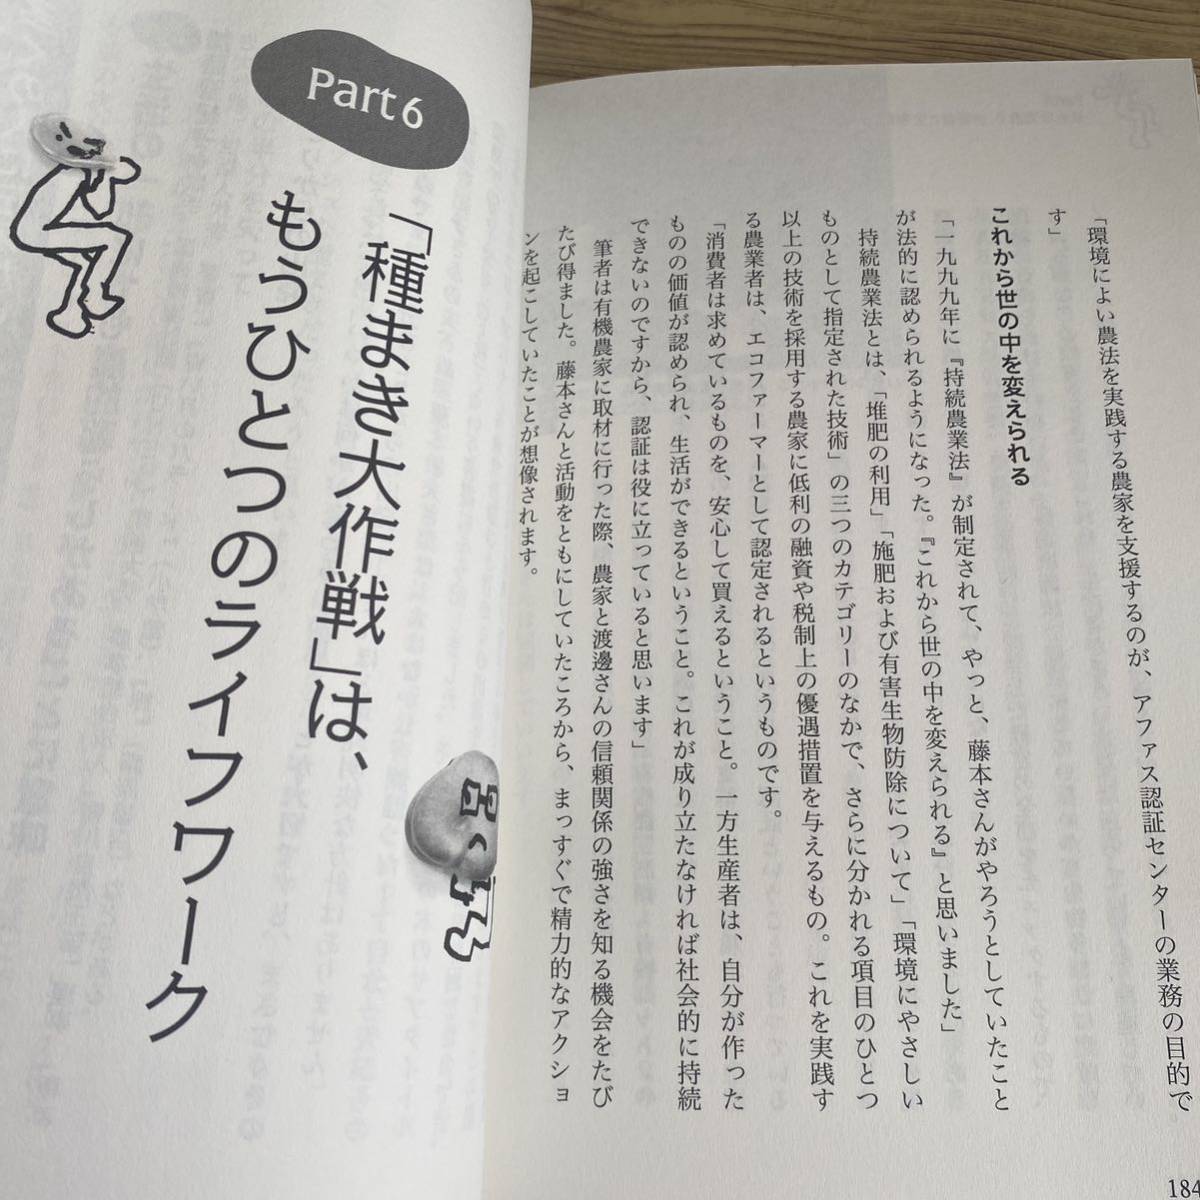 「環境によい農法を実践する農家を支援するのが、アファス認証センターの業務の目的で
す」
これから世の中を変えられる
「一九九九年に『持続農業法』が制定されて、やっと、藤本さんがやろうとしていたこと
が法的に認められるようになった。『これから世の中を変えられる』と思いました」
持続農業法とは、「堆肥の利用」「施肥および有害生物防除について」「環境にやさしい
ものとして指定された技術」の三つのカテゴリーのなかで、さらに分かれる項目のひとつ
以上の技術を採用する農家に低利の融資や税制上の優遇措置を与えるもの。これを実践す
る農業者は、エコファーマーとして認定されるというものです。
「消費者は求めているものを、安心して買えるということ。一方生産者は、自分が作った
ものの価値が認められ、生活ができるということ。これが成り立たなければ社会的に持続
できないのですから、認証は役に立っていると思います」
筆者は有機農家に取材に行った際、農家と渡邊さんの信頼関係の強さを知る機会をたび
たび得ました。藤本さんと活動をともにしていたころから、まっすぐで精力的なアクショ
ンを起こしていたことが想像されます。
184
Part6
「種まき大作戦」は、
もうひとつのライフワーク